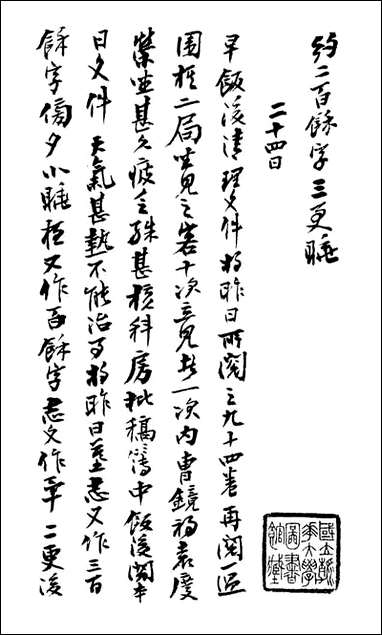 約二百餘字三更睡
二十四日
早飯後清理文件將昨日所閱之九十四卷再閱一過
圍棋二局坐見之客十次立見者一次內曹鏡初袁度
榮坐甚久疲乏殊甚核科房批稿簿中飯後閱本
日文件 天氣甚熱不能治事將昨日墓志又作三百
餘字傍夕小睡夜又作百餘字志文作畢二更後